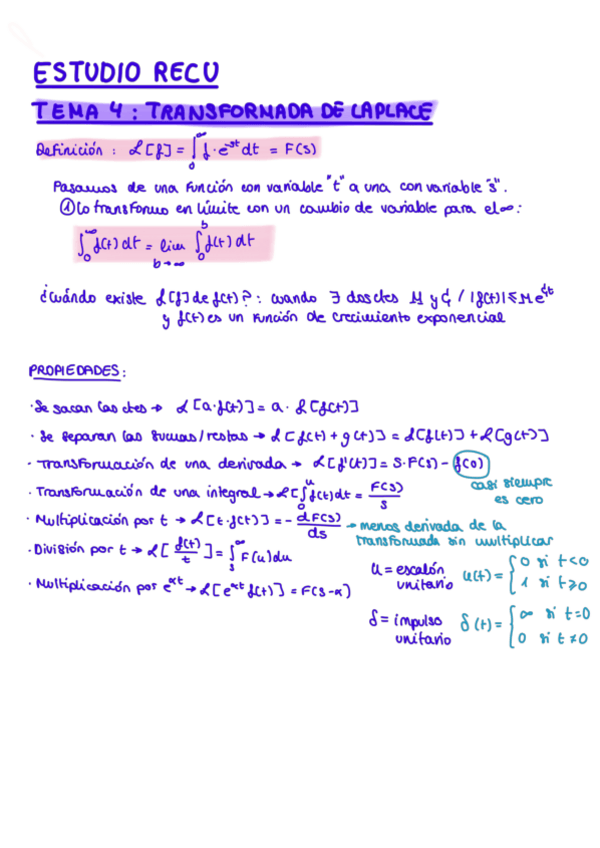 ESTUDIO RECU
TEMA 4: TRANSFORMADA DE LAPLACE
Definición: ℒ[f] = ∫₀^∞ f·e^-st dt = F(s)
Pasamos de una función con variable "t" a una con variable "s".
① Lo transformo en límite con un cambio de variable para el ∞:
∫₀^∞ f(t) dt = lim b→∞ ∫₀^b f(t) dt
¿Cuándo existe ℒ[f] de f(t)?: cuando ∃ dos ctes M y ɗ / |f(t)| ≤ M e^ɗt
y f(t) es un función de crecimiento exponencial
PROPIEDADES:
· Se sacan las ctes → ℒ[a·f(t)] = a·ℒ[f(t)]
· Se separan las sumas/restas → ℒ[f(t) + g(t)] = ℒ[f(t)] + ℒ[g(t)]
· Transformación de una derivada → ℒ[f'(t)] = s·F(s) - f(0)
casi siempre
es cero
· Transformación de una integral → ℒ[∫₀^u f(t) dt = F(s)/s
· Multiplicación por t → ℒ[t·f(t)] = - dF(s)/ds → menos derivada de la
transformada sin multiplicar
· División por t → ℒ[f(t)/t] = ∫ₛ^∞ F(u)du
u = escalón
unitario
u(t) = { 0 si t<0
1 si t≥0
· Multiplicación por e^αt → ℒ[e^αt f(t)] = F(s-α)
δ = impulso
unitario
δ(t) = { ∞ si t=0
0 si t≠0